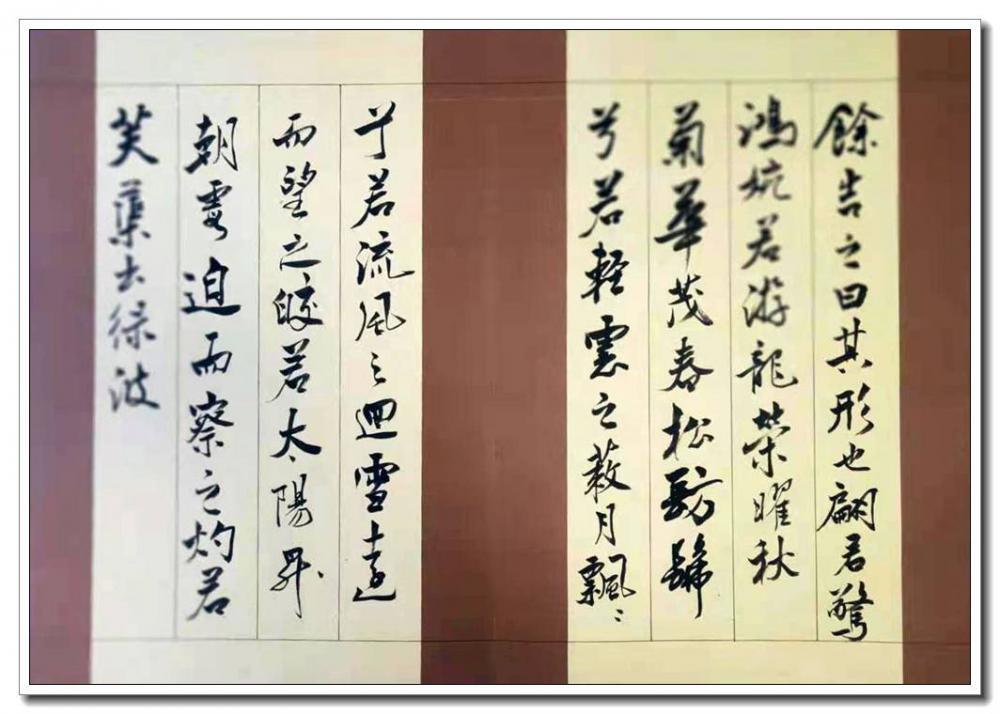 餘告之曰其形也翩若驚
鴻婉若游龍榮曜秋
菊華茂春松髣髴
兮若輕雲之蔽月飄〻
兮若流風之迴雪遠
而望之皎若太陽昇
朝霞迫而察之灼若
芙蕖出綠波